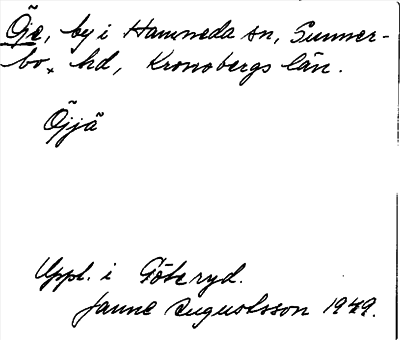 Öje, by i Hamneda sn, Sunner-
bo hd, Kronobergs län.
Öjjä
Uppt. i Göteryd.
Janne Augustsson 1949.